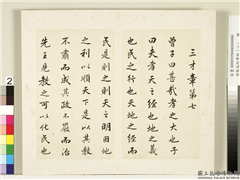 三才章第七
曾子曰甚哉孝之大也子
曰夫孝天之經也地之義
也民之行也天地之經而
民是則之則天之明因地
之利以順天下是以其教
不肅而成其政不嚴而治
先王見教之可以化民也
2